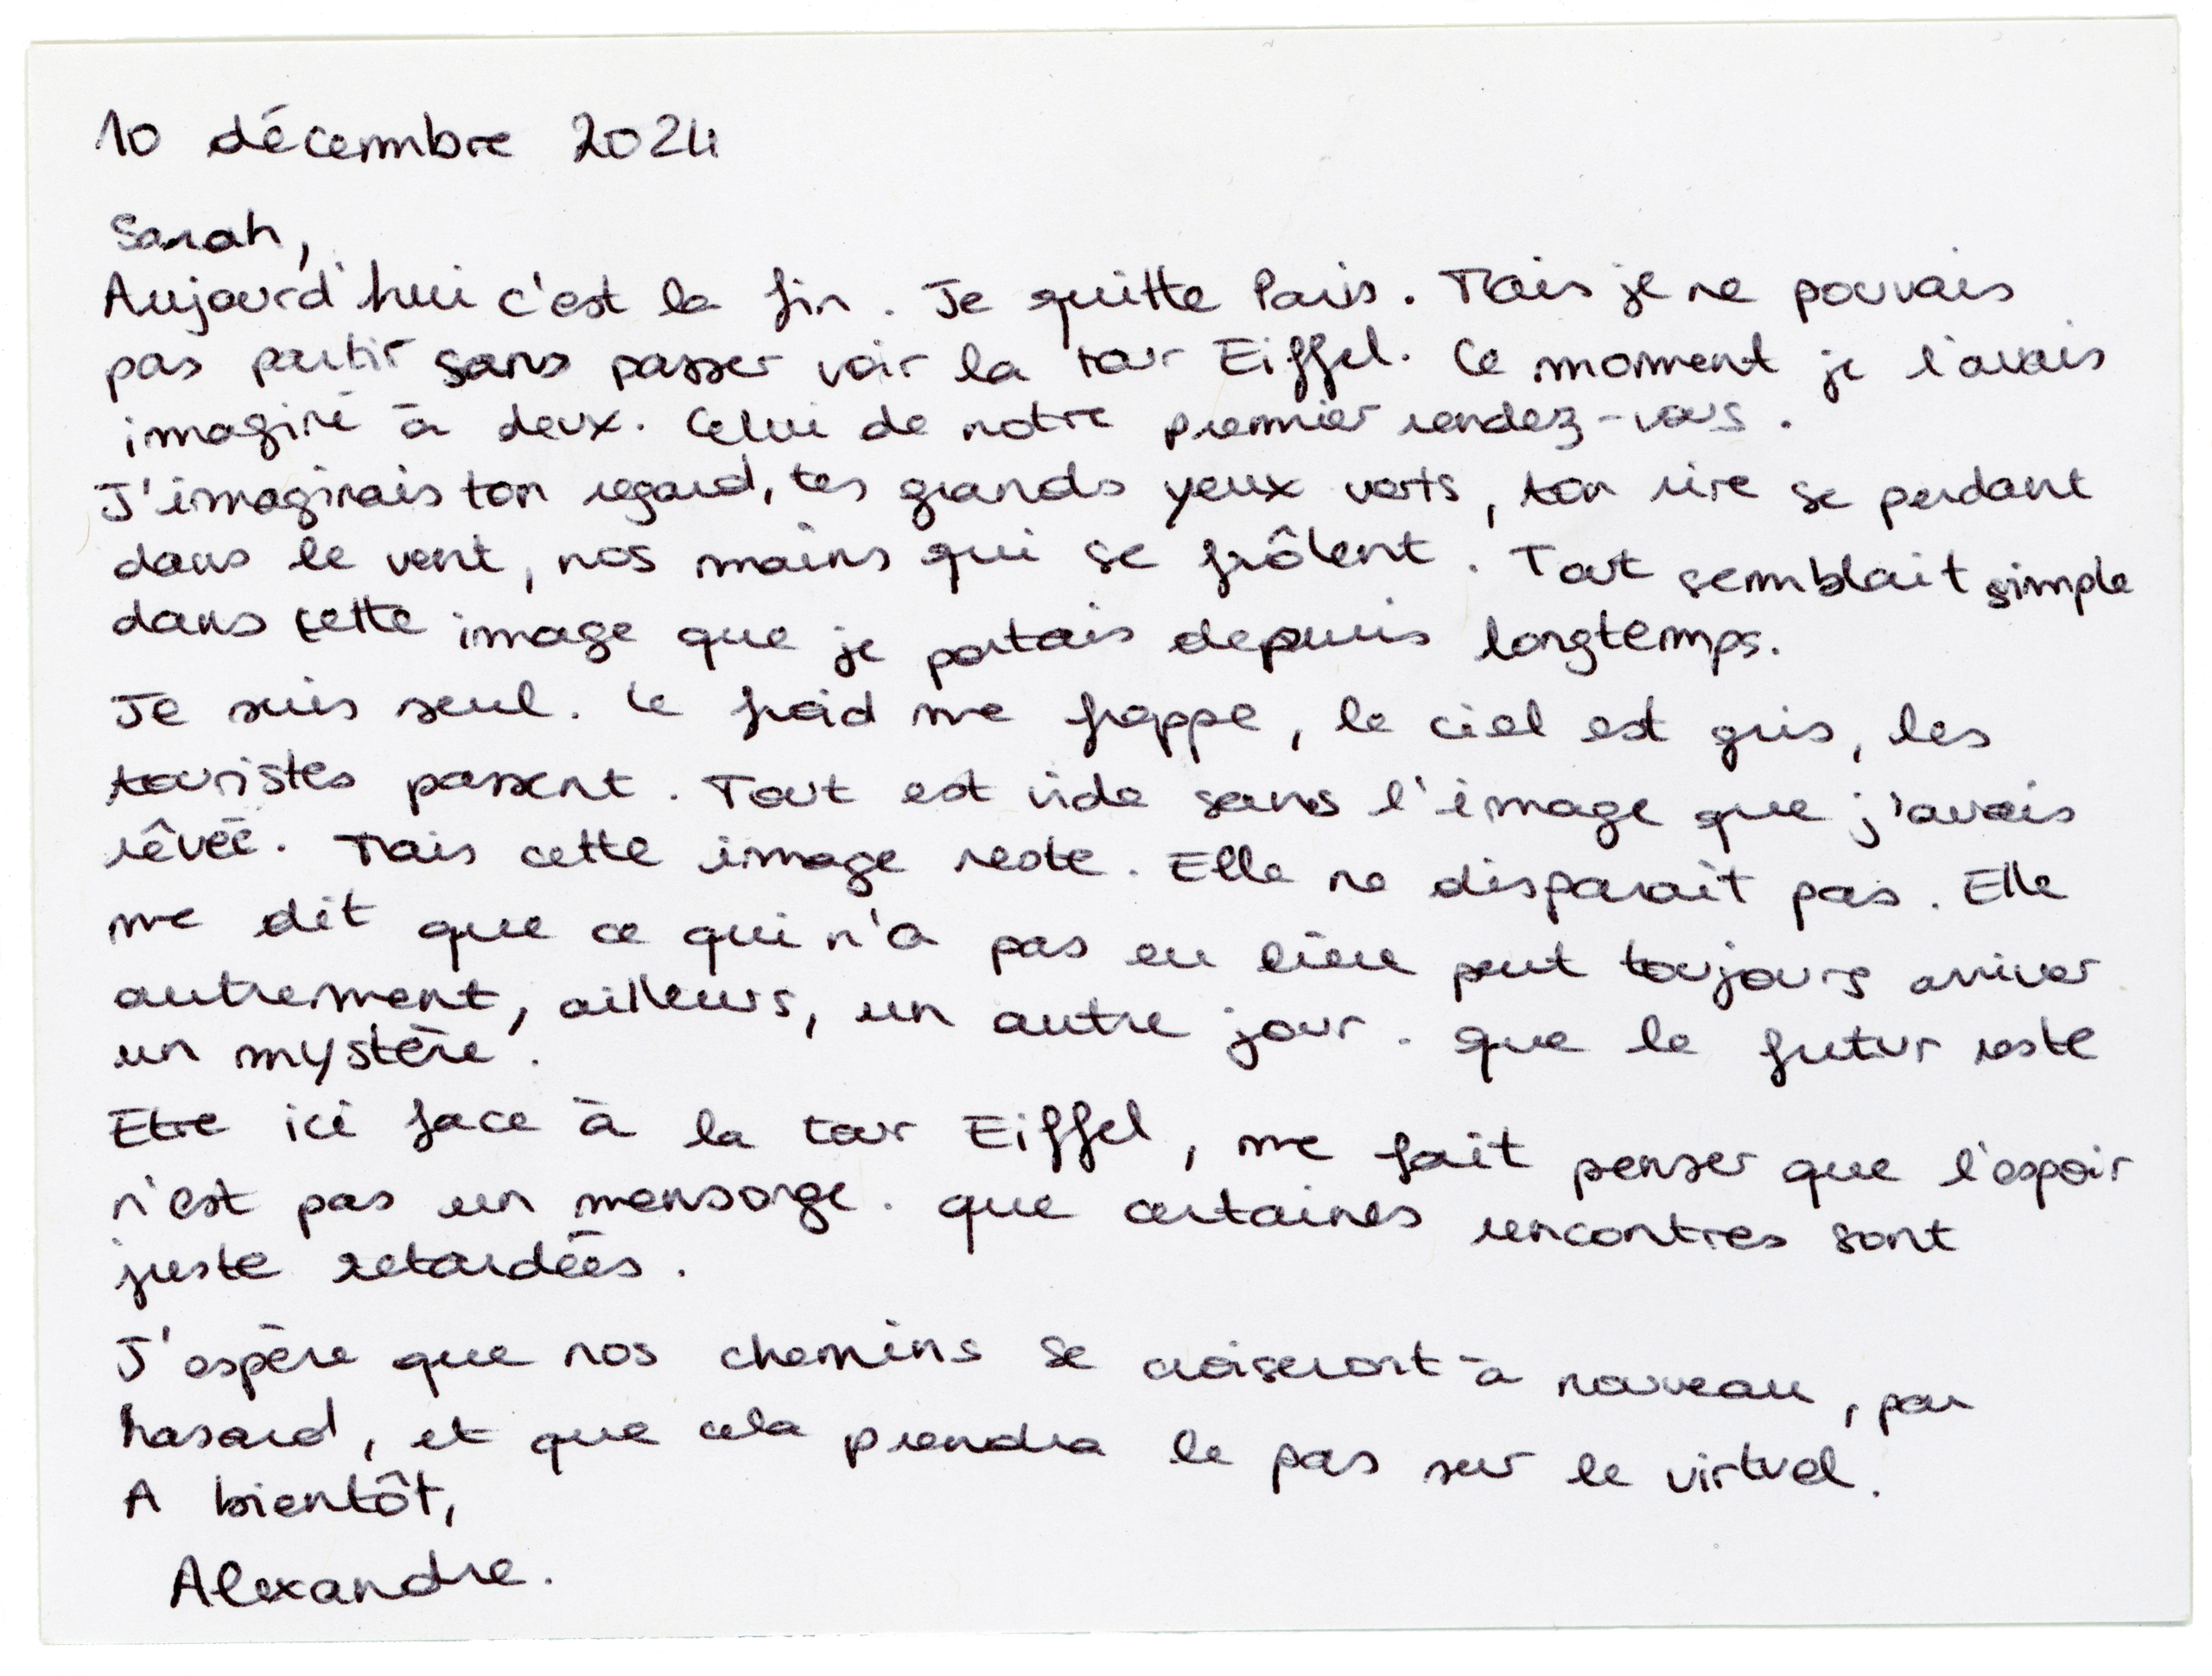 10 décembre 2024
Sarah,
Aujourd'hui c'est la fin. Je quitte Paris. Mais je ne pouvais
pas partir sans passer voir la tour Eiffel. Ce moment je l'avais
imaginé à deux. Celui de notre premier rendez-vous.
J'imaginais ton regard, tes grands yeux verts, ton rire se perdant
dans le vent, nos mains qui se frôlent. Tout semblait simple
dans cette image que je portais depuis longtemps.
Je suis seul. Le froid me frappe, le ciel est gris, les
touristes passent. Tout est vide sans l'image que j'avais
rêvée. Mais cette image reste. Elle ne disparait pas. Elle
me dit que ce qui n'a pas eu lieu peut toujours arriver
autrement, ailleurs, un autre jour. Que le futur reste
un mystère.
Etre ici face à la tour Eiffel, me fait penser que l'espoir
n'est pas un mensonge. Que certaines rencontres sont
juste retardées.
J'espère que nos chemins se croiseront à nouveau, par
hasard, et que cela prendra le pas sur le virtuel.
A bientôt,
Alexandre.